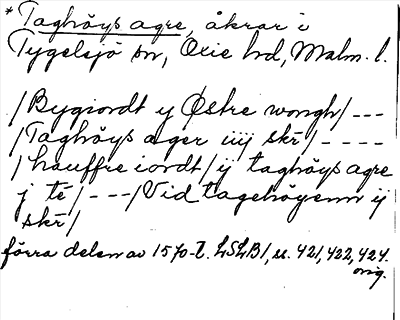 * Taghöys agre, åkrar i
Tygelsjö sn, Oxie hd, Malm. l.
/Bygiordt y Østre wongh/ ---
/Taghöys ager iiij skr/ ----
/hauffre iordt/ ij taghöys agre
j te/ ---/Vid tagehöyenn ij
skr/
förra delen av 1570-t. LSLB1, ss. 421, 422, 424.
orig.